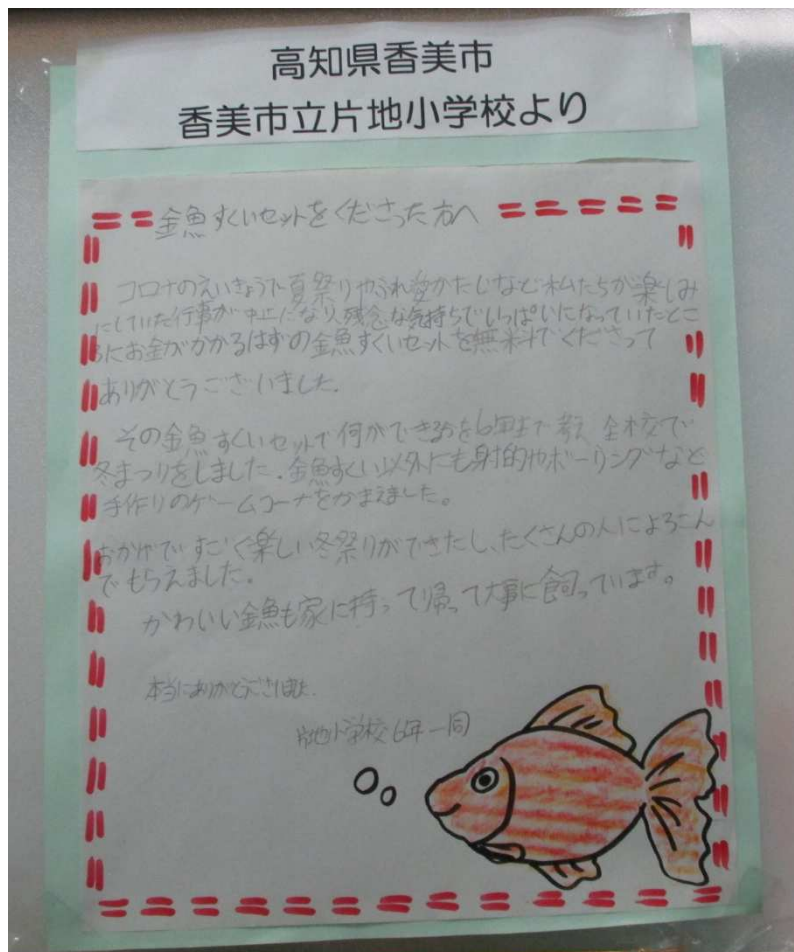 高知県香美市
香美市立片地小学校より
金魚すくいセットをくださった方へ
コロナのえいきょうで夏祭りやふれ愛かたじなど私たちが楽しみ
にしていた行事が中止になり、残念な気持ちでいっぱいになっていたとこ
ろにお金がかかるはずの金魚すくいセットを無料でくださって
ありがとうございました。
その金魚すくいセットで何ができるかを6年生で考え 全校で
冬まつりをしました。金魚すくい以外にも射的やボーリングなど
手作りのゲームコーナをかまえました。
おかげですごく楽しい冬祭りができたし、たくさんの人によろこん
でもらえました。
かわいい金魚も家に持って帰って大事に飼っています。
本当にありがとうございました。
片地小学校 6年一同